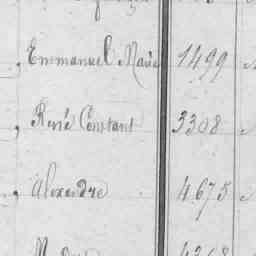 Emmanuel Marie 1499
René Constant 3308
Alexandre 4675
4368